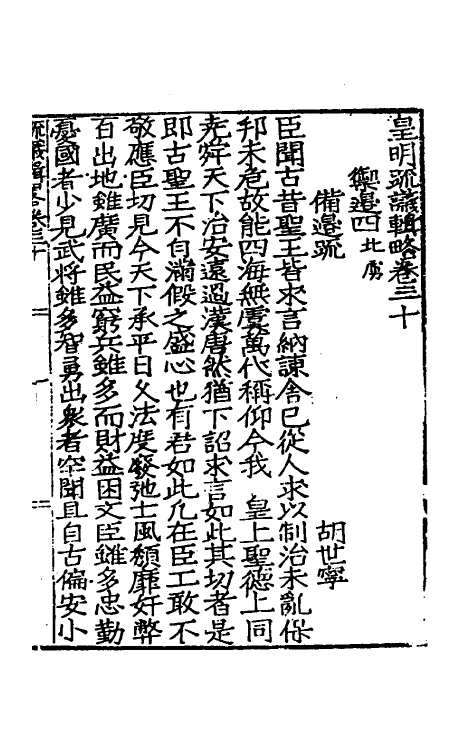 皇明疏議輯略卷三十
禦邊四北虜
備邊疏 胡世寧
臣聞古昔聖王皆求言納諫舍己從人求以制治未亂保
邦未危故能四海無虞萬代稱仰今我 皇上聖德上同
堯舜天下治安遠過漢唐然猶下詔求言如此其切者是
即古聖王不自滿假之盛心也有君如此凡在臣工敢不
敬應臣切見今天下承平日久法度廢弛士風頹靡奸弊
百出地雖廣而民益窮兵雖多而財益困文臣雖多忠勤
憂國者少見武將雖多智勇出衆者罕聞且自古偏安小
疏議輯略卷三十 一